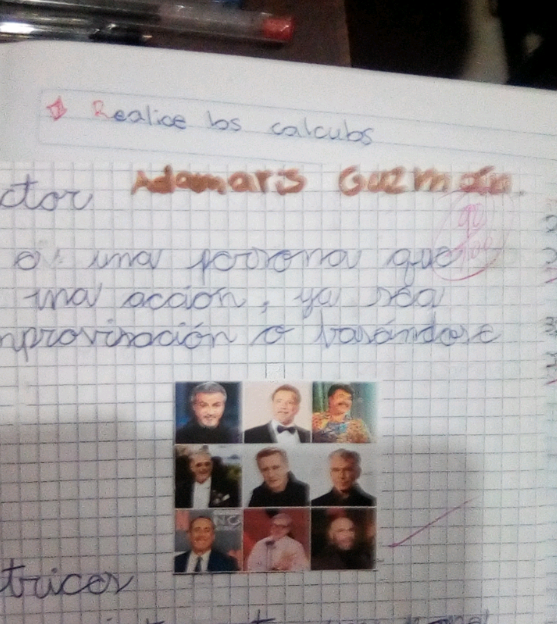 Realice los calculos
ctor Adamaris Guzmán.
es una persona que
una acción, ya sea
mprovisación o basándose
NC
trices